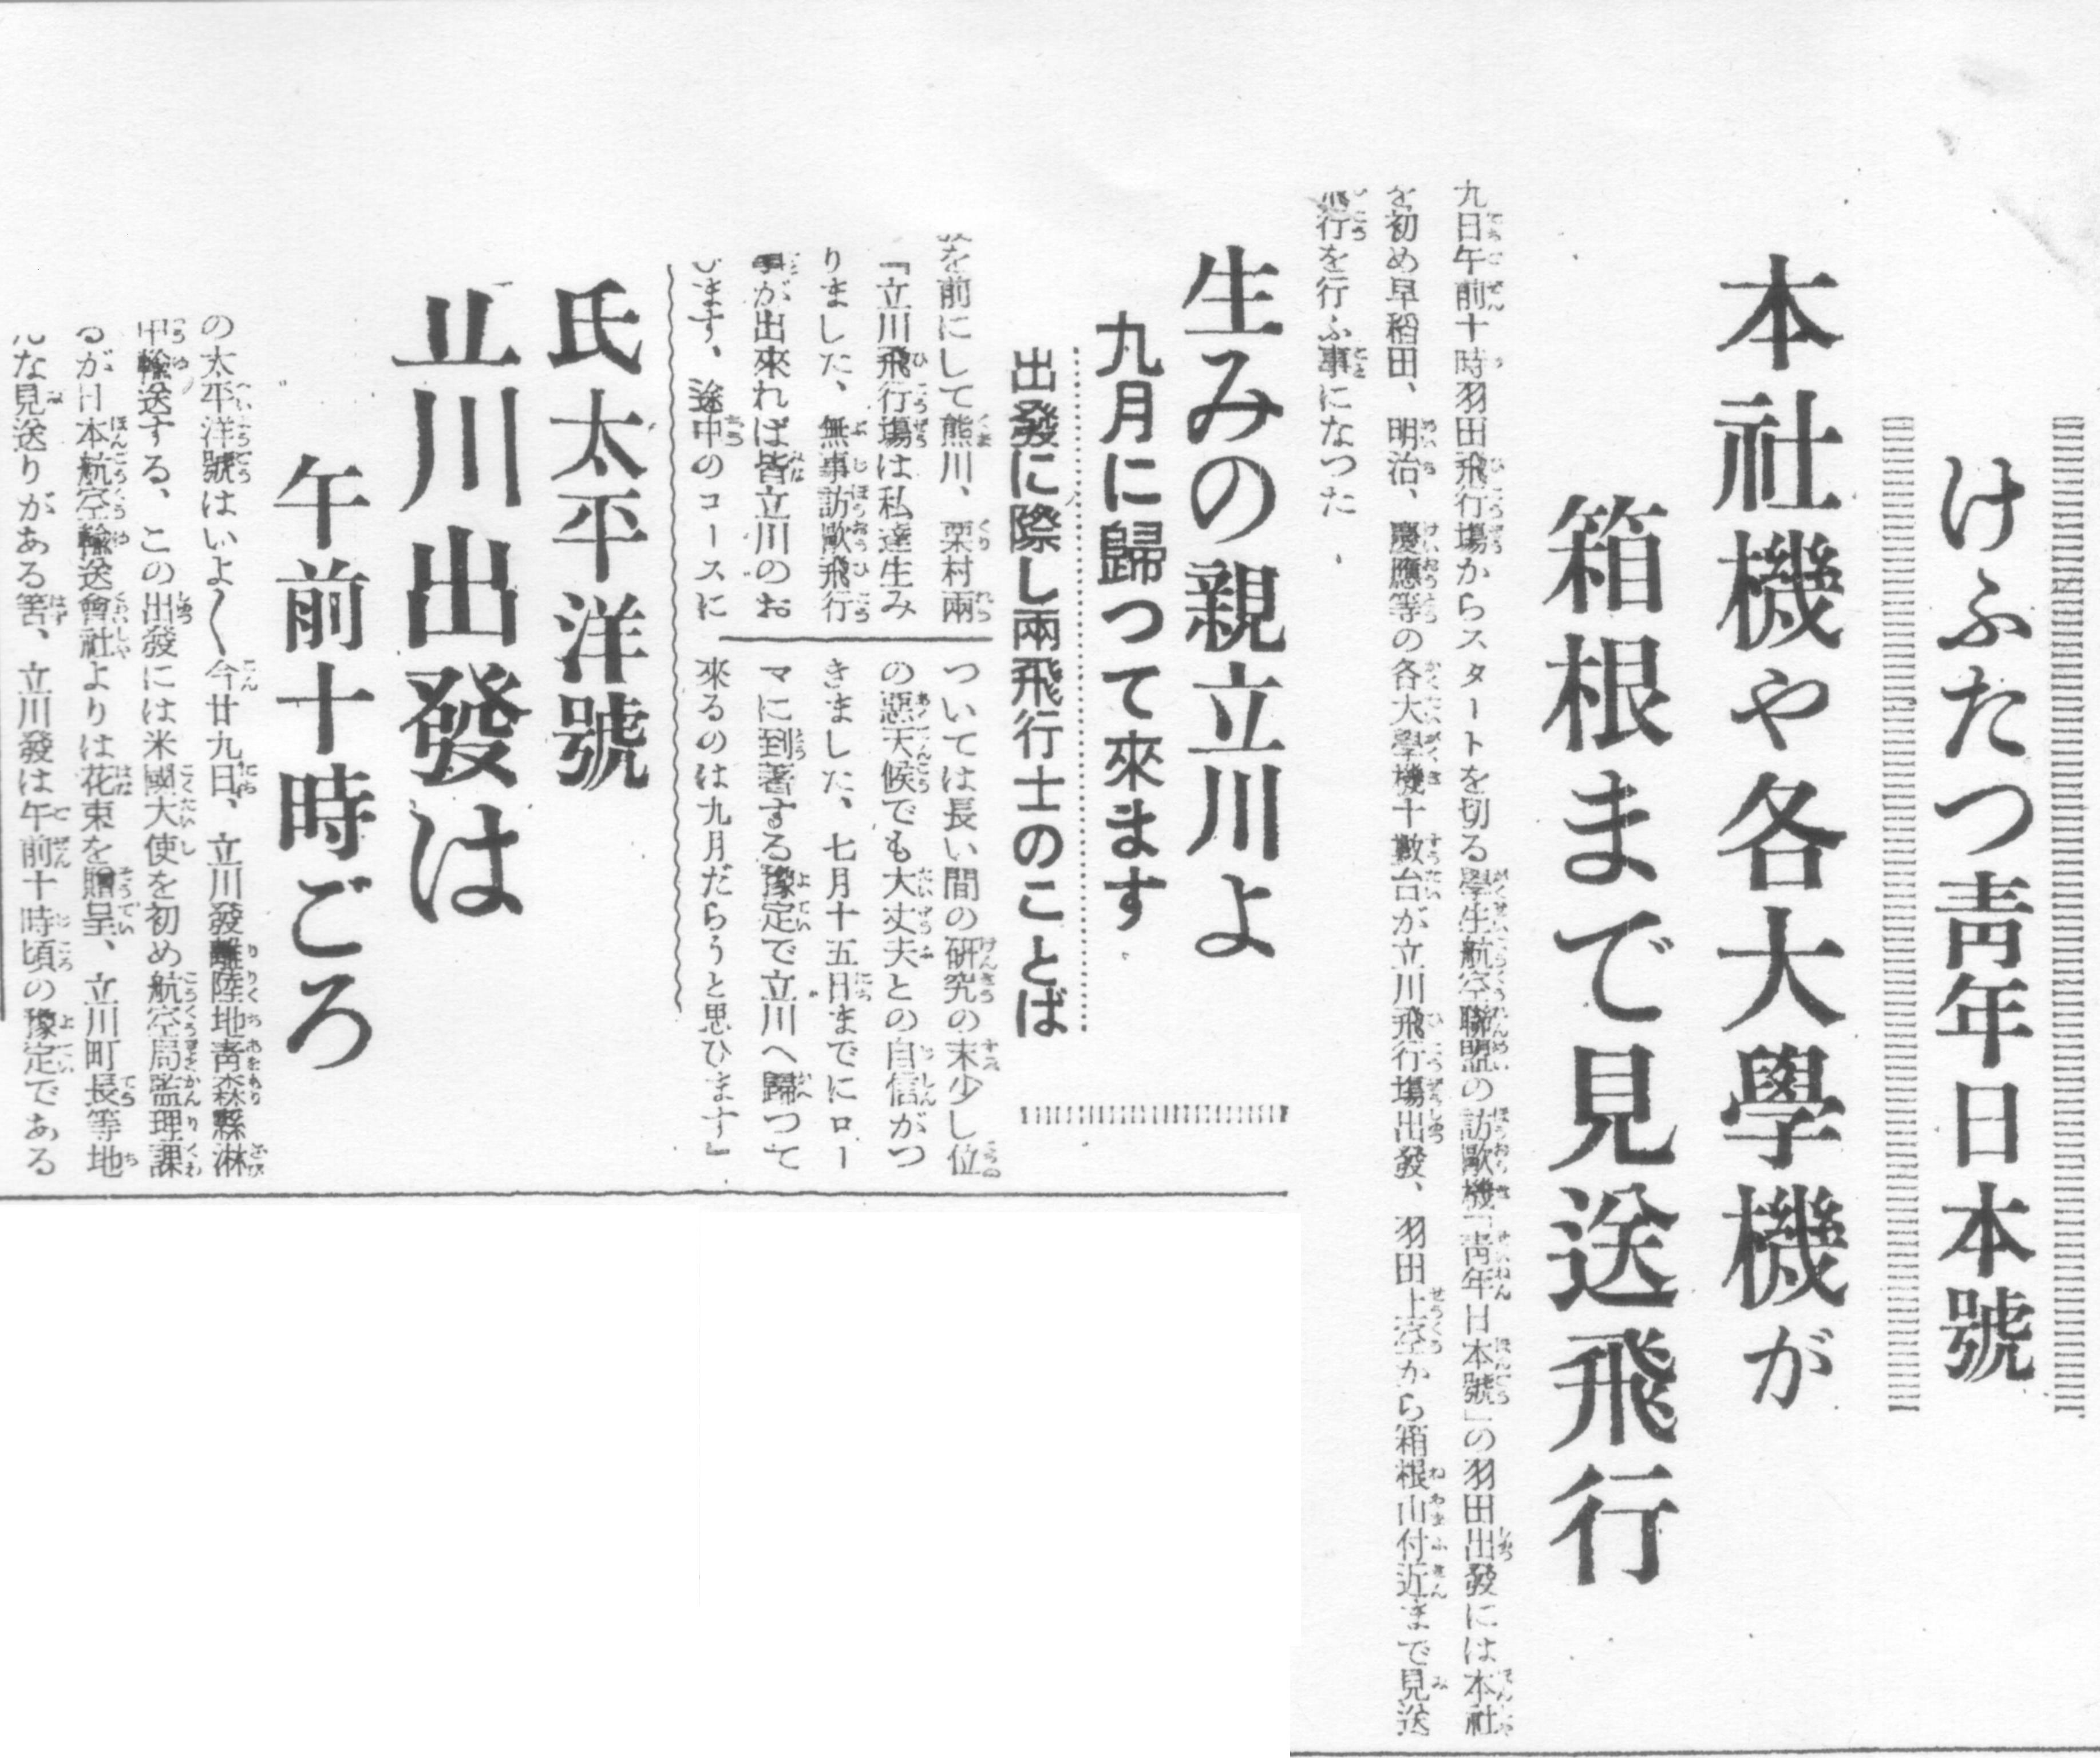 けふたつ靑年日本號
本社機や各大學機が
箱根まで見送飛行
九日午前十時羽田飛行場からスタートを切る學生航空聯盟の訪歐機「靑年日本號」の羽田出發には本社
を初め早稻田、明治、慶應等の各大學機十數台が立川飛行場出發、羽田上空から箱根山付近まで見送
飛行を行ふ事になつた
生みの親立川よ
九月に歸つて來ます
出發に際し兩飛行士のことば
を前にして熊川、栗村兩
「立川飛行場は私達生み
りました、無事訪歐飛行
事が出來れば皆立川のお
います、途中のコースに
ついては長い間の硏究の末少し位
の惡天候でも大丈夫との自信がつ
きました、七月十五日までにロー
マに到著する豫定で立川へ歸つて
來るのは九月だらうと思ひます」
氏太平洋號
立川出發は
午前十時ごろ
の太平洋號はいよ〱今廿九日、立川發離陸地靑森縣淋
輸送する、この出發には米國大使を初め航空局監理課
るが日本航空輸送會社よりは花束を贈呈、立川町長等地
んな見送りがある筈、立川發は午前十時頃の豫定である